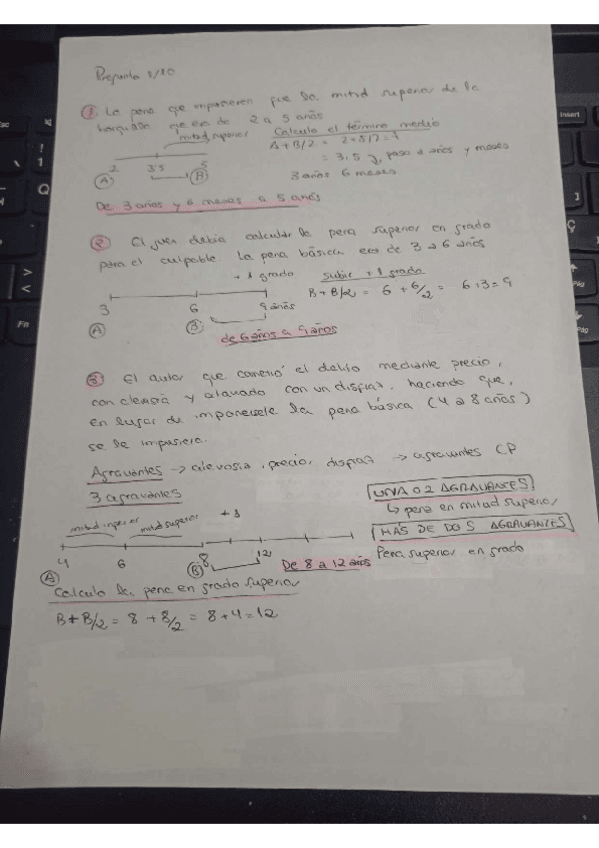 Pregunta 1/10
① La pena que impusieren que la mitad superior de la
horquilla que era de 2 a 5 años
mitad superior Calculo el término medio
A+B/2 = 2+5/2=7
2 3'5 5
= 3,5 y paso a años y meses
A B
3 años 6 meses
De 3 años y 6 meses a 5 años
② El juez debía calcular la pena superior en grado
para el culpable. La pena básica era de 3 a 6 años
+ 1 grado subir +1 grado
B + B/2 = 6 + 6/2 = 6+3 = 9
3 6 9 años
A B
de 6 años a 9 años
③ El autor que cometió el delito mediante precio,
con alevosía y ataviado con un disfraz, haciendo que,
en lugar de imponersele la pena básica (4 a 8 años)
se le impusiera.
Agravantes → alevosía, precio, disfraz → agravantes CP
3 agravantes
UNA O 2 AGRAVANTES
↳ pena en mitad superior
mitad inferior mitad superior
MÁS DE DOS AGRAVANTES
Pena superior en grado
4 6 8 12
A B De 8 a 12 años
Calculo la pena en grado superior
B+B/2 = 8 + 8/2 = 8+4=12